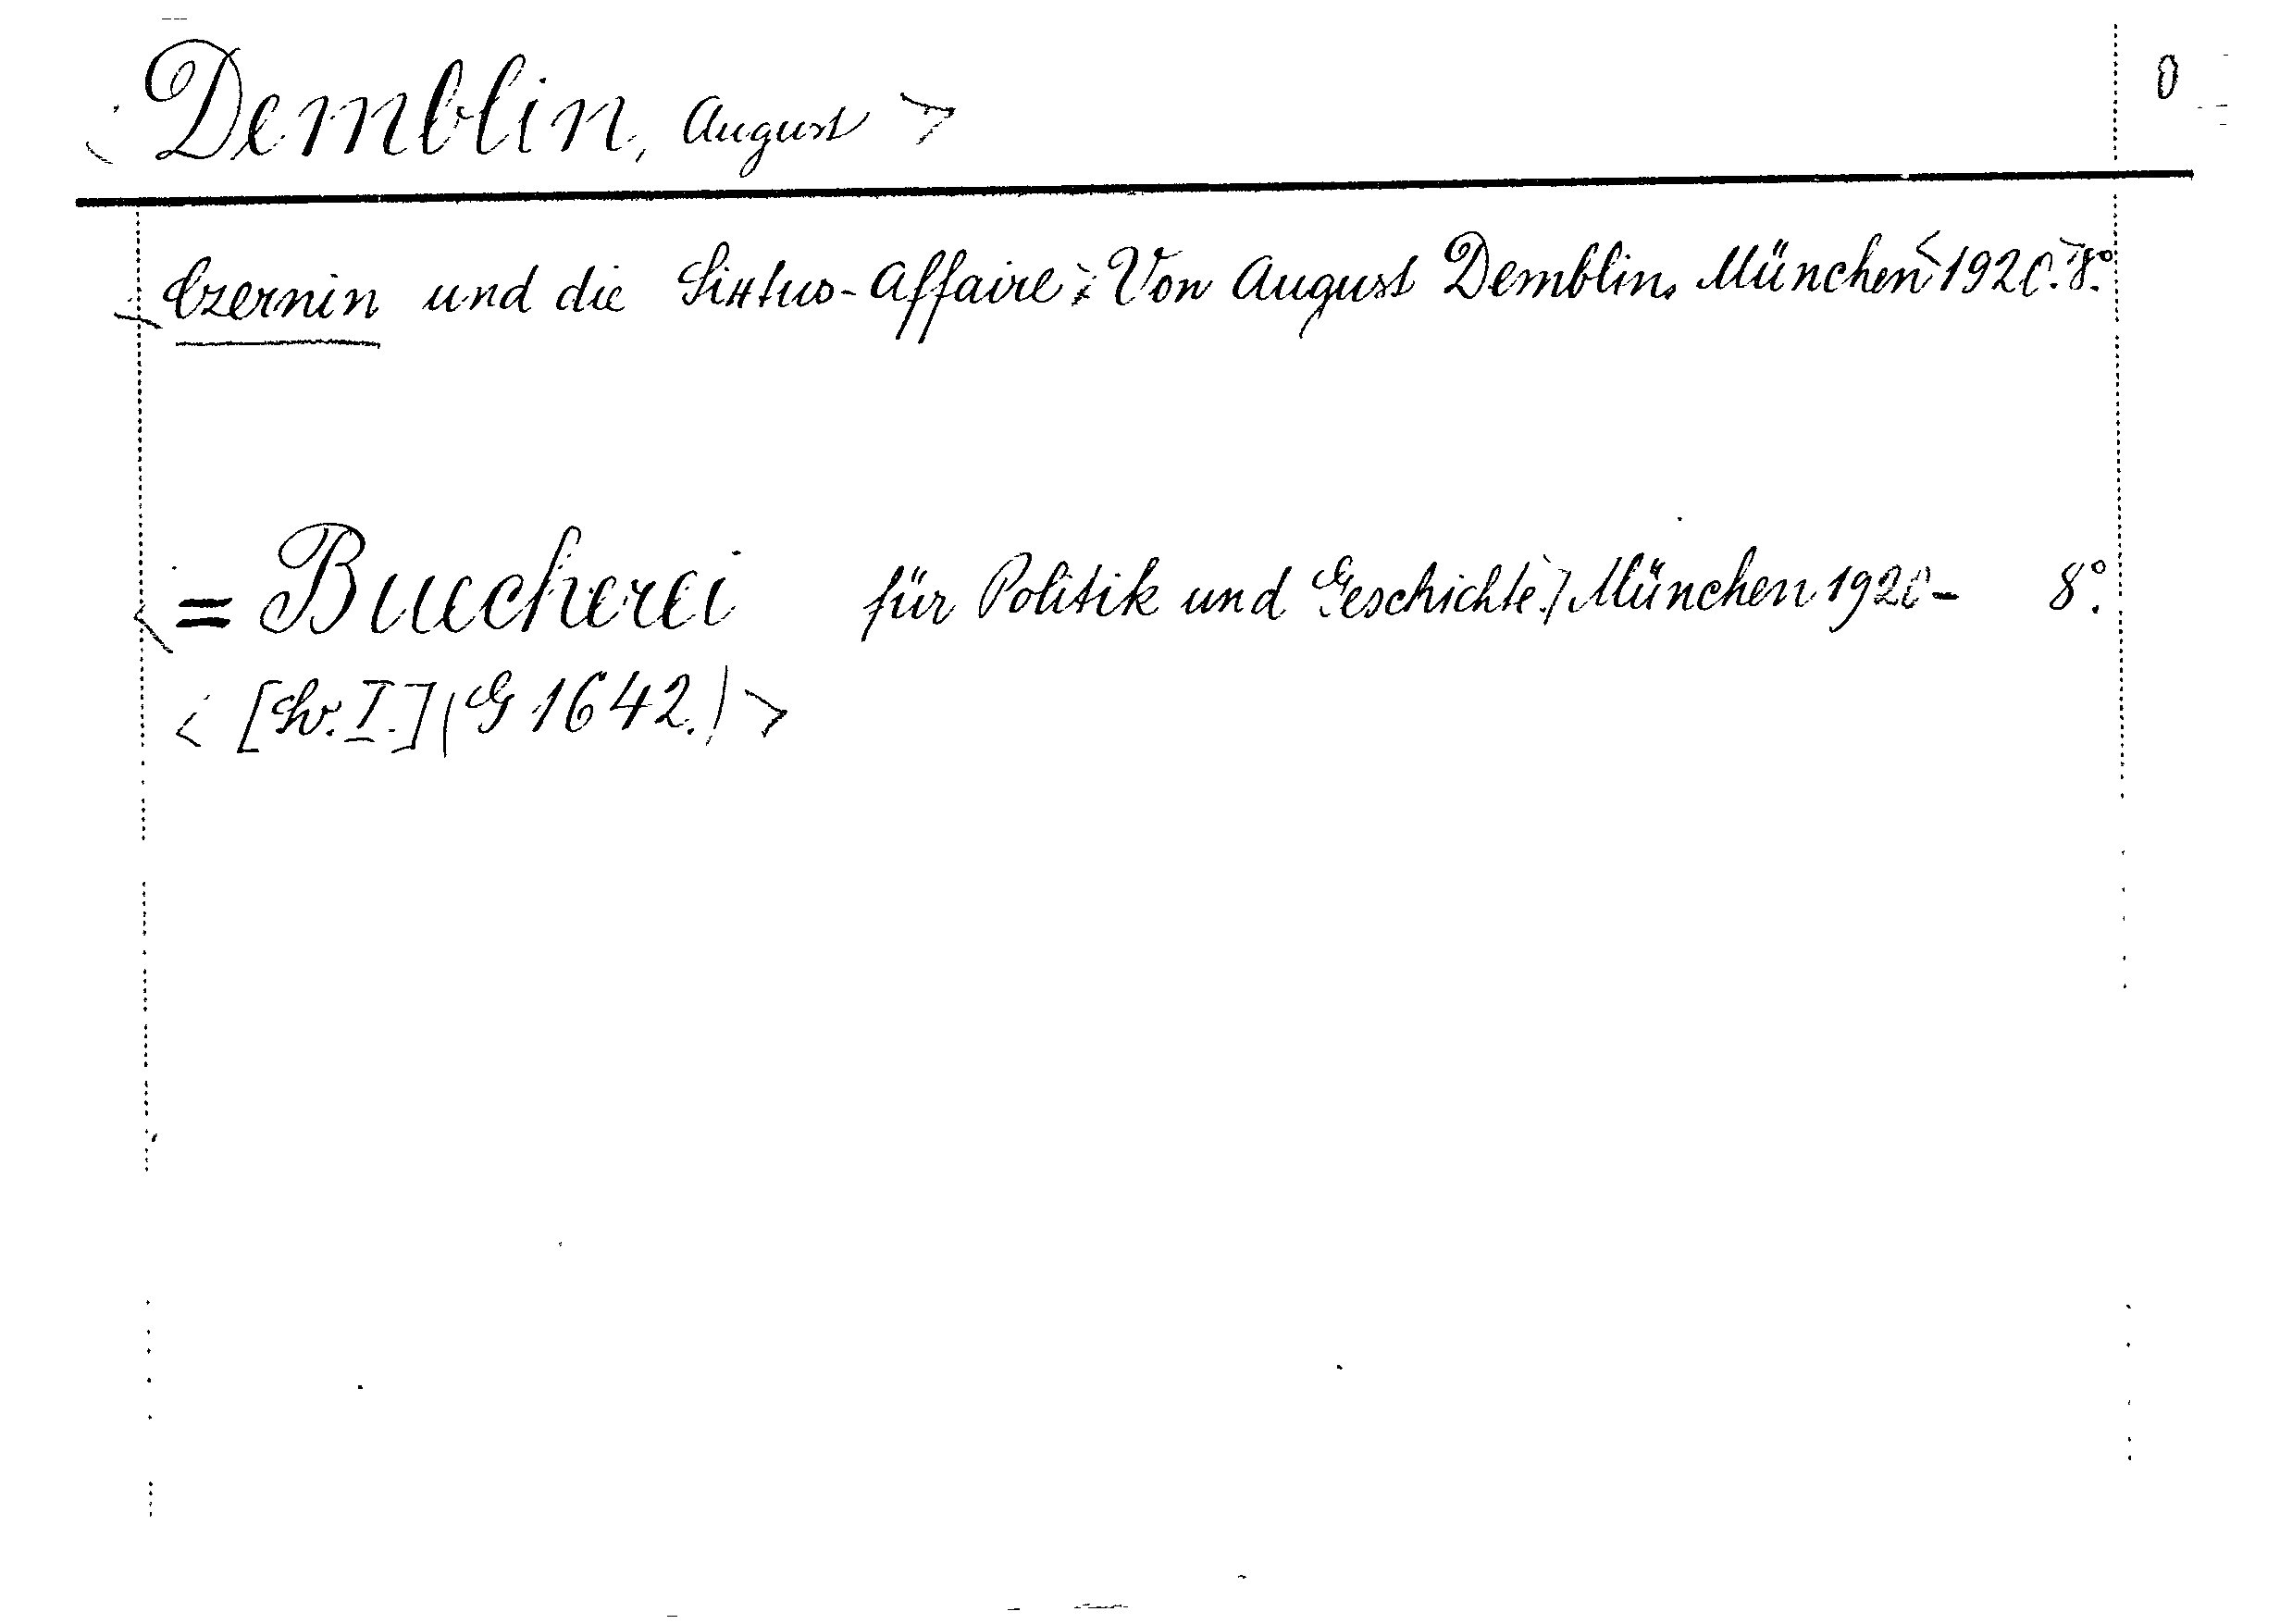 < Demblin, August > 0
< Czernin und die Sixtus-Affaire > : Von August Demblin. München < 1920. > 8°.
< = Buecherei für Politik und Geschichte.) München 1920- 8°.
< [Schr. I.] (G 1642.) >